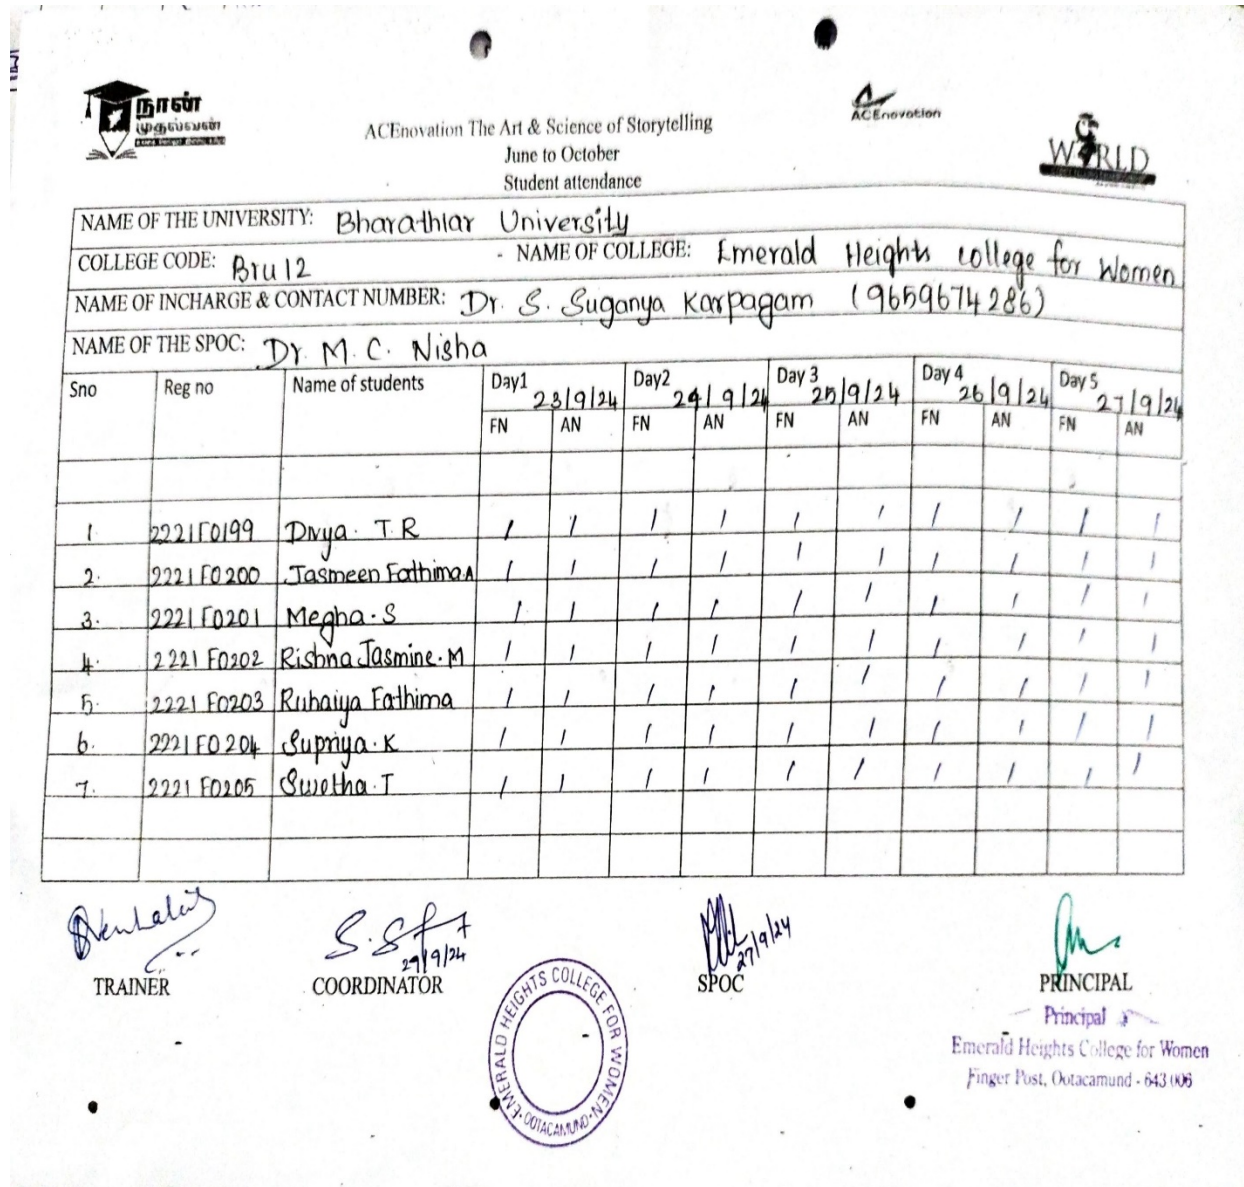 நான்
முதல்வன்
ACEnovation
WORLD
ACEnovation The Art & Science of Storytelling
June to October
Student attendance
NAME OF THE UNIVERSITY: Bharathiar University
COLLEGE CODE: Bru12 - NAME OF COLLEGE: Emerald Heights college for Women
NAME OF INCHARGE & CONTACT NUMBER: Dr. S. Suganya Karpagam (9659674286)
NAME OF THE SPOC: Dr. M. C. Nisha
Sno Reg no Name of students Day1 23/9/24 Day2 24/9/24 Day 3 25/9/24 Day 4 26/9/24 Day 5 27/9/24
FN AN FN AN FN AN FN AN FN AN
1. 2221F0199 Divya. T. R / / / / / / / / / /
2. 2221F0200 Jasmeen Fathima.A / / / / / / / / / /
3. 2221F0201 Megha. S / / / / / / / / / /
4. 2221F0202 Rishna Jasmine. M / / / / / / / / / /
5. 2221F0203 Ruhaiya Fathima / / / / / / / / / /
6. 2221F0204 Supriya. K / / / / / / / / / /
7. 2221F0205 Swetha. T / / / / / / / / / /
27/9/24
TRAINER COORDINATOR SPOC PRINCIPAL
EMERALD HEIGHTS COLLEGE FOR WOMEN
OOTACAMUND
Principal
Emerald Heights College for Women
Finger Post, Ootacamund - 643 006